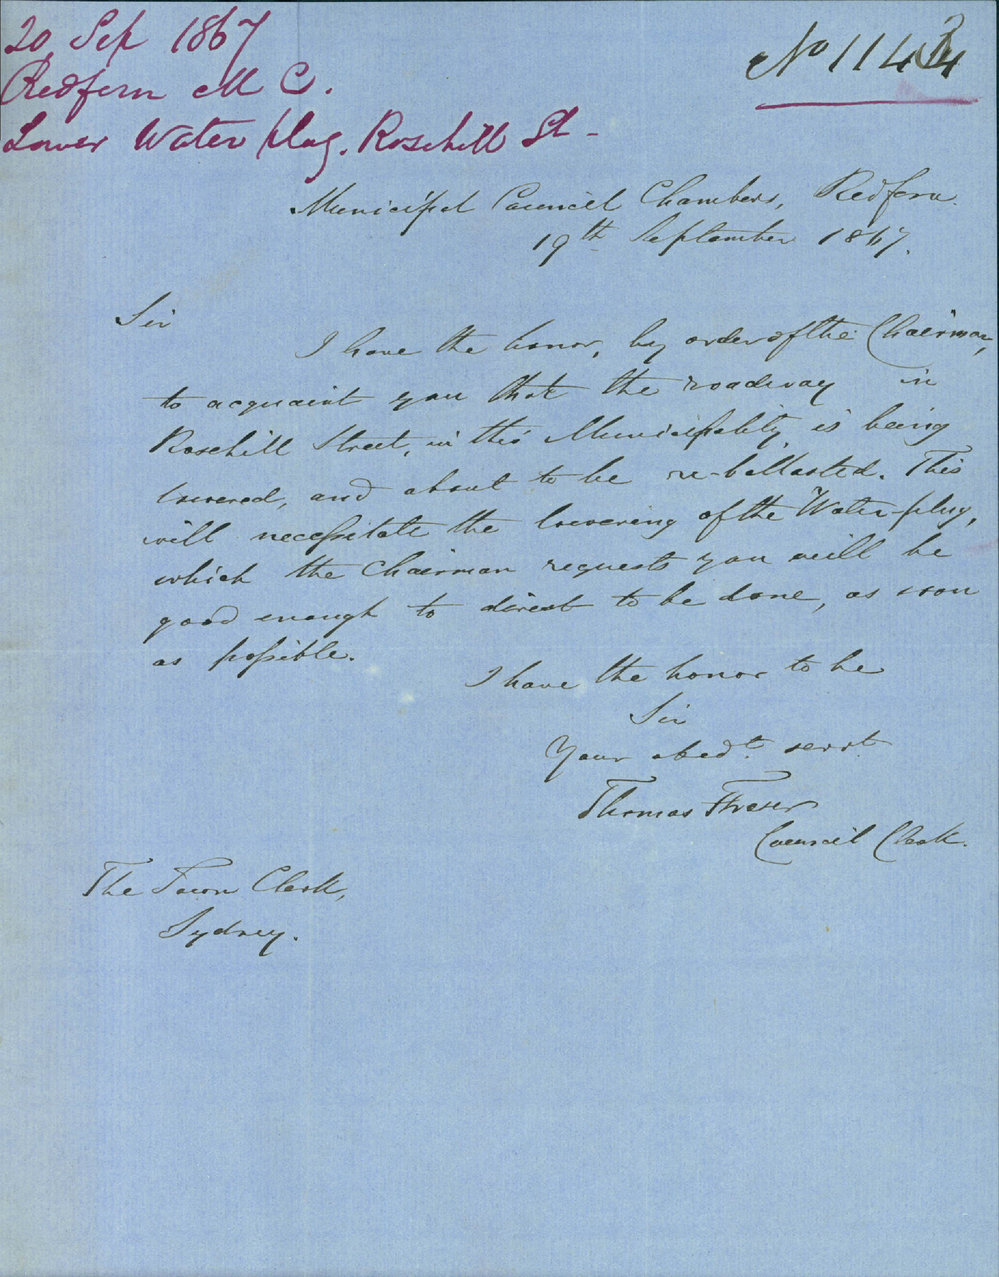 20 Sep 1867
Redfern M C.
Lower Water plug. Rosehill St -
No 1143
Municipal Council Chambers, Redfern.
19th September 1867.
Sir
I have the honor, by order of the Chairman,
to acquaint you that the roadway in
Rosehill Street, in this Municipality, is being
lowered, and about to be re-ballasted. This
will necessitate the lowering of the Water-plug,
which the Chairman requests you will be
good enough to direct to be done, as soon
as possible.
I have the honor to be
Sir
Your obedt. servt
Thomas Fraser
Council Clerk.
The Town Clerk,
Sydney.